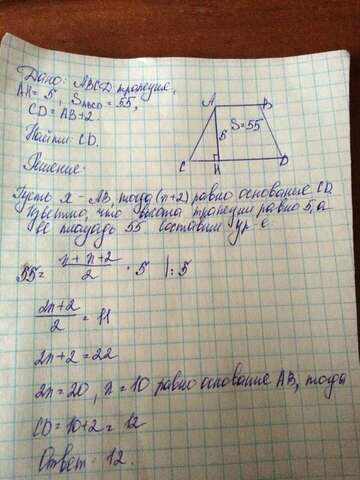 Дано: ABCD трапеция,
AH = 5, SABCD = 55,
CD = AB + 2.
Найти: CD.
Решение:
A B
5 S=55
C H D
Пусть x - AB, тогда (x+2) равно основание CD.
Известно, что высота трапеции равна 5, а
её площадь 55 составим ур-е.
55 = x + x + 2 / 2 · 5 |: 5
2x+2 / 2 = 11
2x+2 = 22
2x = 20, x = 10 равно основание AB, тогда
CD = 10+2 = 12
Ответ: 12.